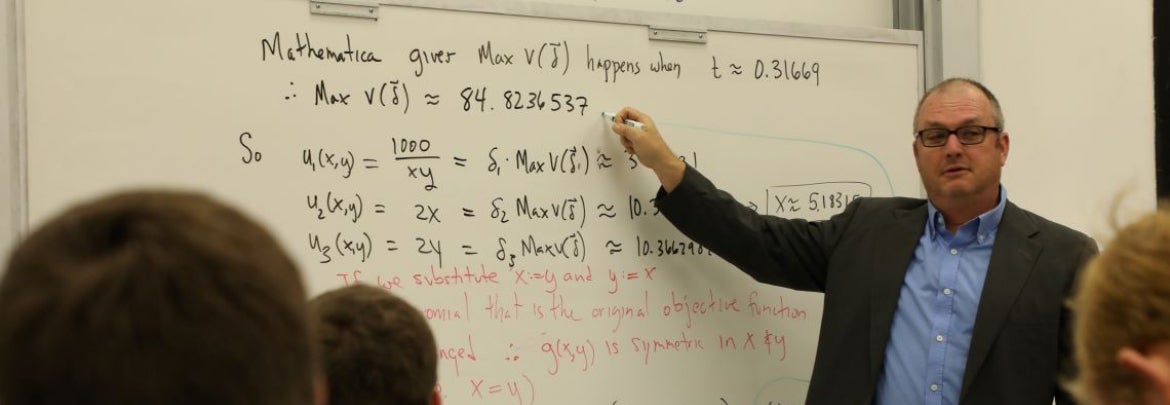 Mathematica gives Max V(δ⃗) happens when t ≈ 0.31669
∴ Max V(δ⃗) ≈ 84.8236537
So u₁(x,y) = 1000/xy = δ₁ · Max V(δ⃗) ≈ 3
u₂(x,y) = 2x = δ₂ Max V(δ⃗) ≈ 10.3 x ≈ 5.1831
u₃(x,y) = 2y = δ₃ Max V(δ⃗) ≈ 10.36629
If we substitute x:=y and y:=x
that is the original objective function
∴ g(x,y) is symmetric in x & y
x = y)